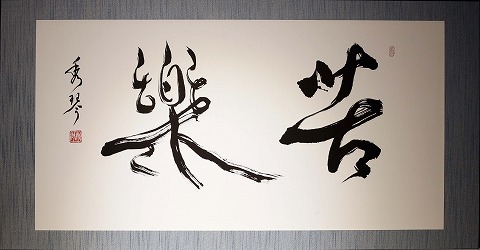 苦樂
秀琴